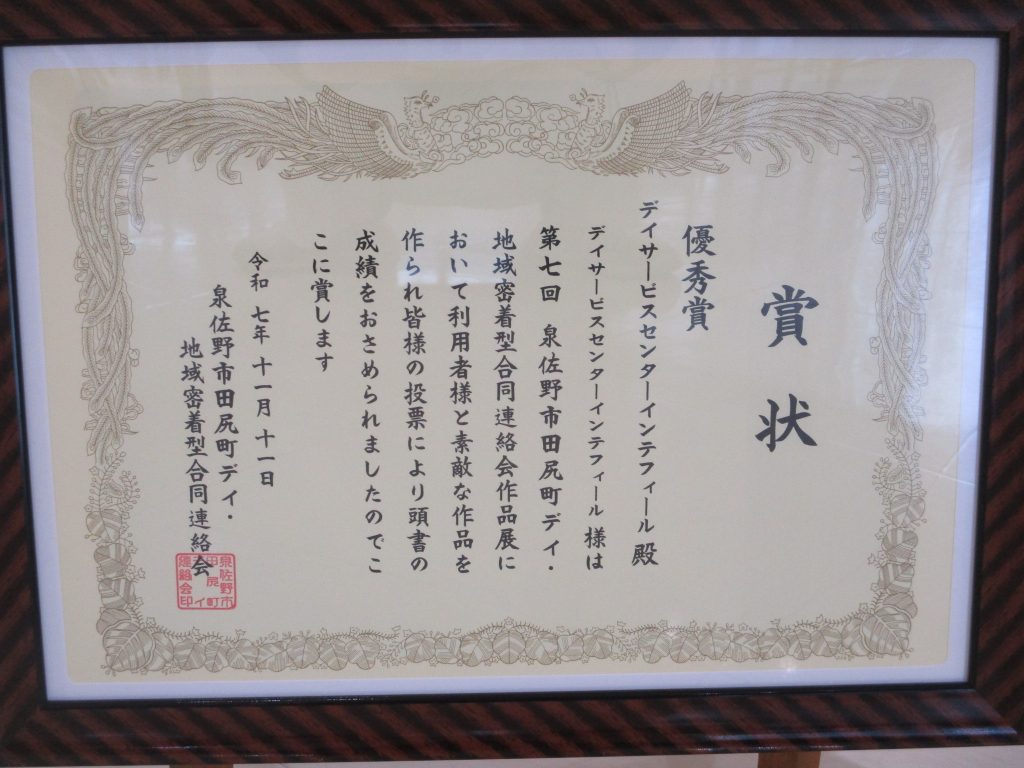 賞状
優秀賞
デイサービスセンターインテフィール 殿
デイサービスセンターインテフィール 様は
第七回 泉佐野市田尻町デイ・
地域密着型合同連絡会作品展に
おいて利用者様と素敵な作品を
作られ皆様の投票により頭書の
成績をおさめられましたのでこ
こに賞します
令和 七年 十一月 十一日
泉佐野市田尻町デイ・
地域密着型合同連絡会
泉佐野市
田尻町
デイ
連絡会印